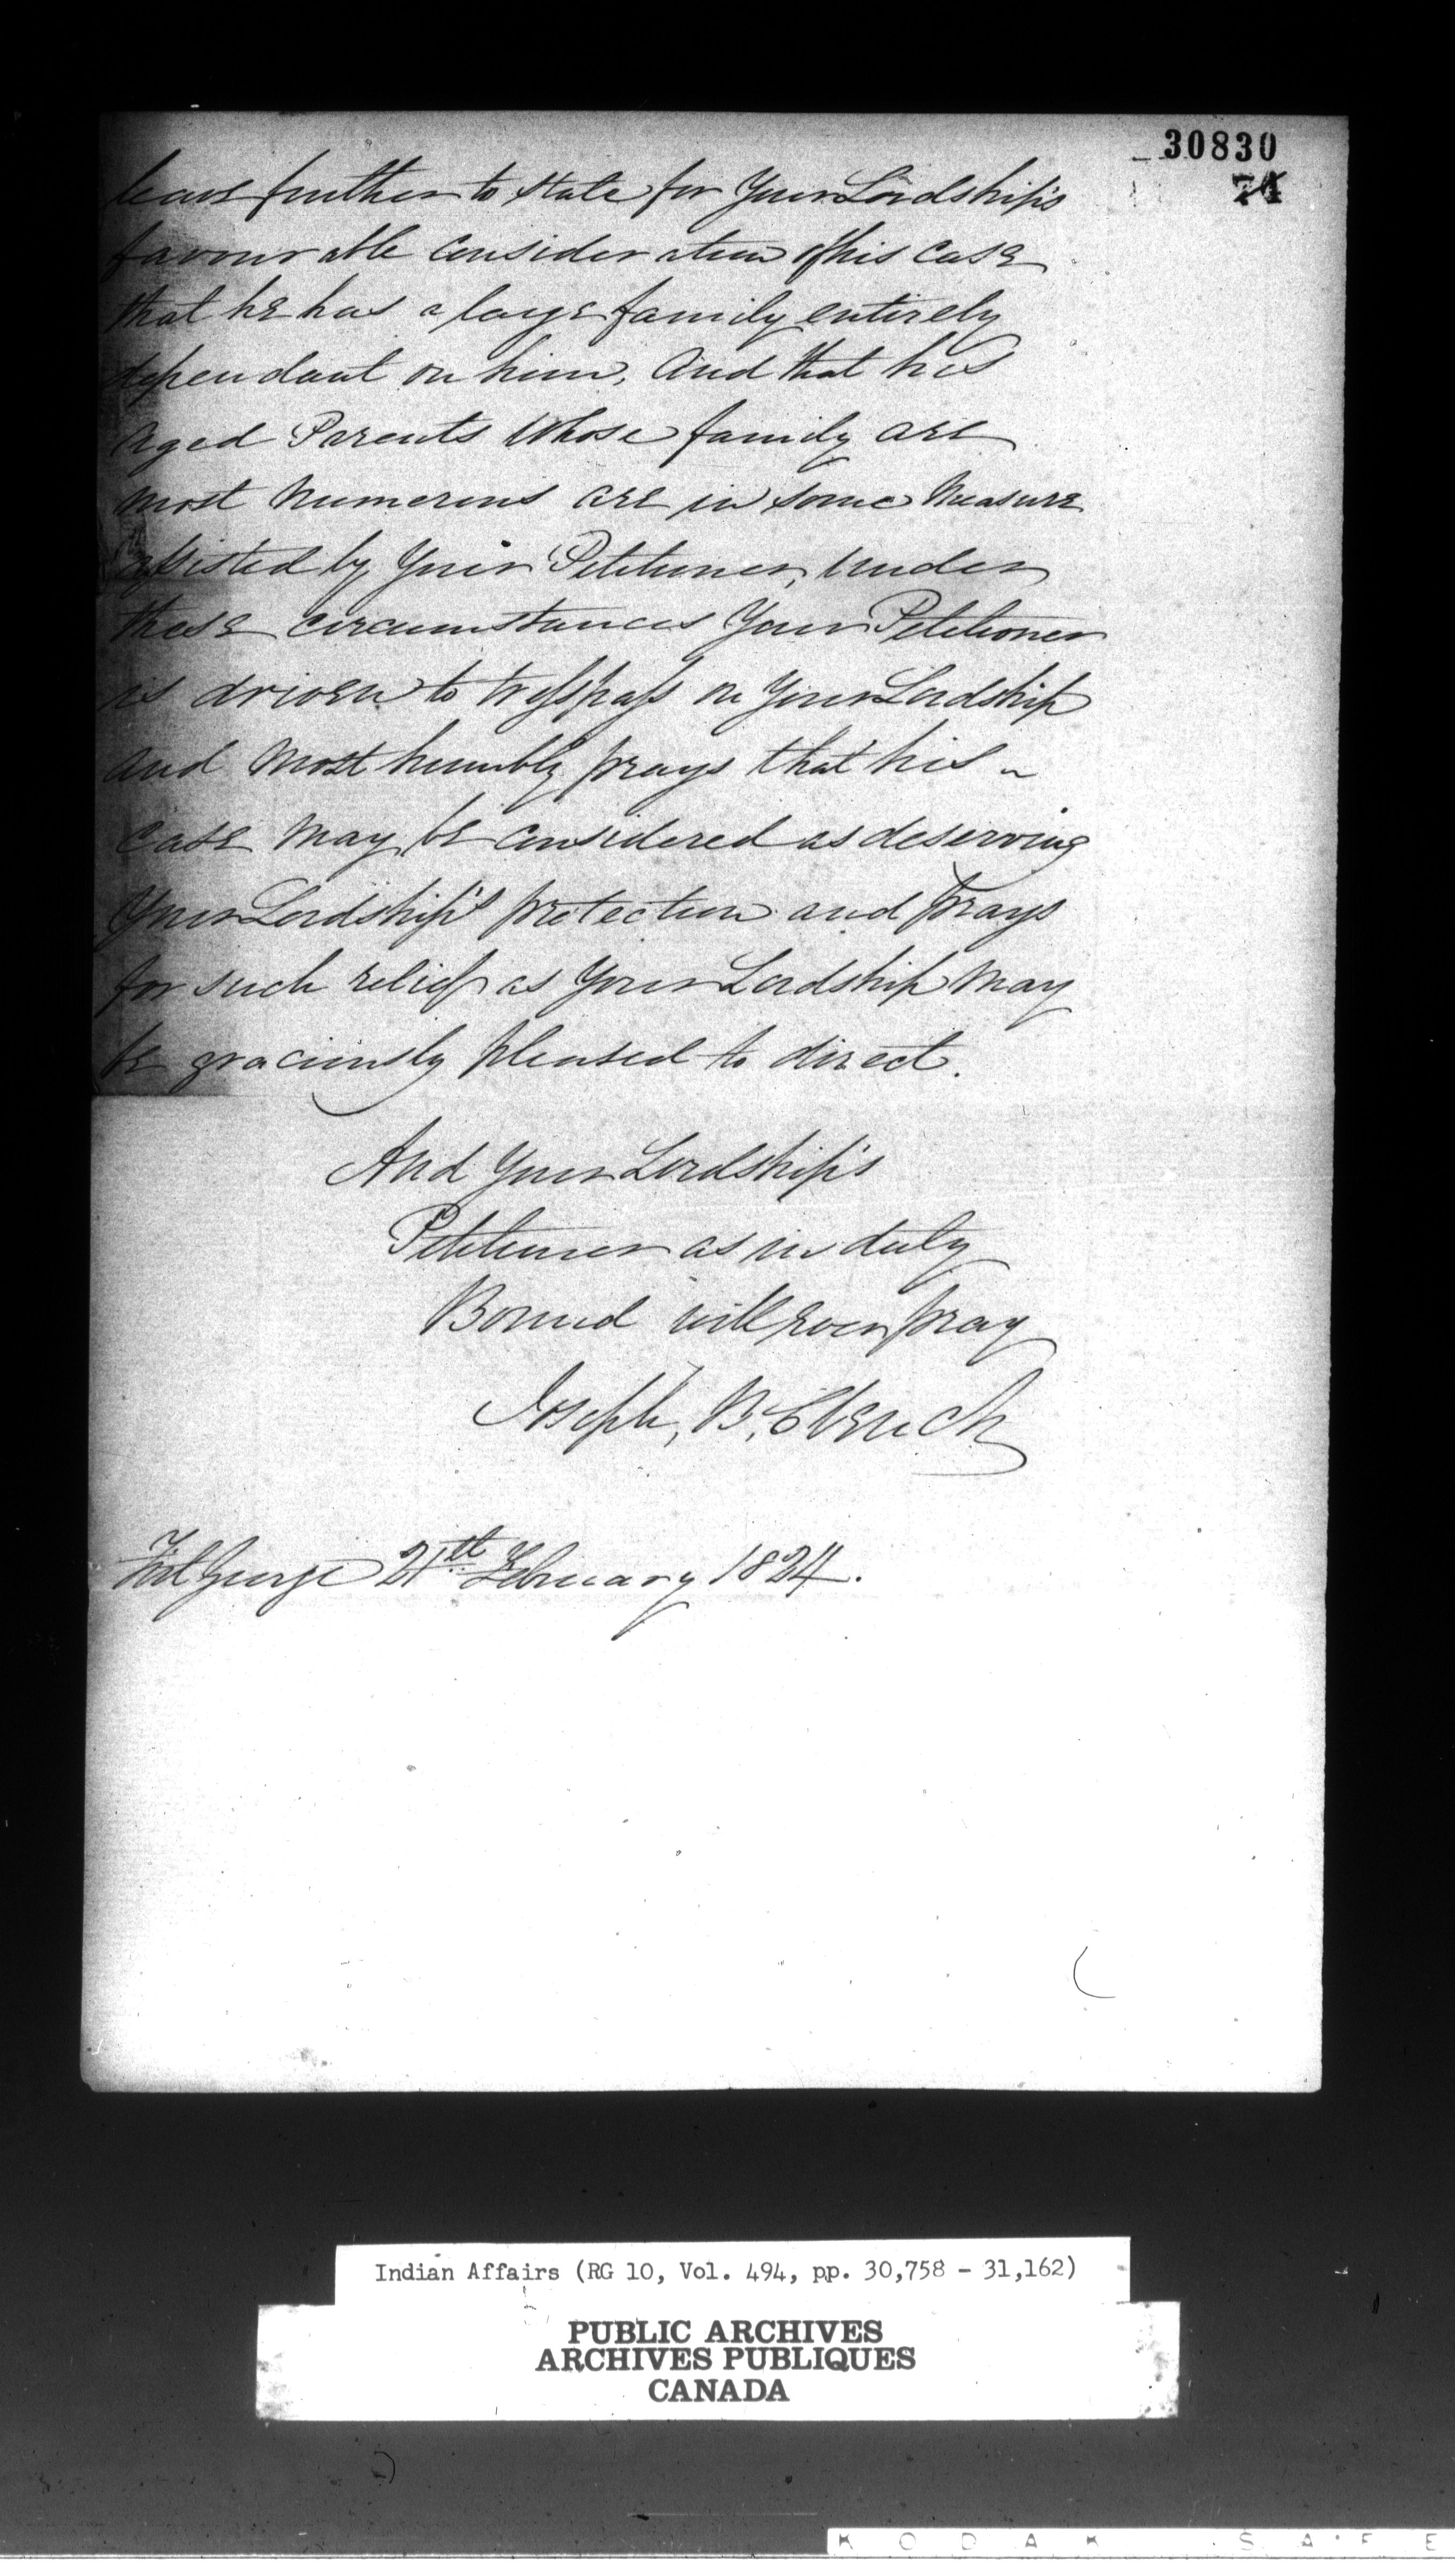 30830
74
leave further to state for Your Lordship's
favourable consideration of his case
that he has a large family entirely
dependant on him, and that his
Aged Parents whose family are
most numerous are in some measure
assisted by Your Petitioner, under
these circumstances Your Petitioner
is driven to tresspass on Your Lordship
and most humbly prays that his
case may be considered as deserving
Your Lordship's protection and prays
for such relief as Your Lordship may
be graciously pleased to direct.
And Your Lordship's
Petitioner as in duty
Bound will ever pray
Joseph, B. Clench
Fort George 21st February 1824.
Indian Affairs (RG 10, Vol. 494, pp. 30,758 - 31,162)
PUBLIC ARCHIVES
ARCHIVES PUBLIQUES
CANADA
KODAK SAFE